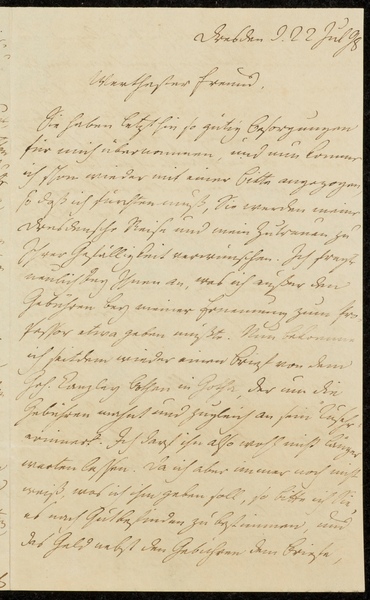 Dresden d. 22 Jul 98
Werthester Freund,
Sie haben letzthin so gütig Besorgungen
für mich übernommen, und nun komme
ich schon wieder mit einer Bitte angezogen,
so daß ich fürchten muß, Sie werden meine
Dresdensche Reise und mein Zutrauen zu
Ihrer Gefälligkeit verwünschen. Ich fragte
neulich bey Ihnen an, was ich außer den
Gebühren bey meiner Ernennung zum Pro-
fessor etwa geben müßte. Nun bekomme
ich seitdem wieder einen Brief von dem
in Gotha, der um die
Gebühren mahnt und zugleich an sein
erinnert. Ich darf ihn also wohl nicht länger
warten lassen. Da ich aber immer noch nicht
weiß, was ich ihm geben soll, so bitte ich Sie,
es nach Gutbefinden zu bestimmen, und
das Geld nebst den Gebühren dem Briefe,